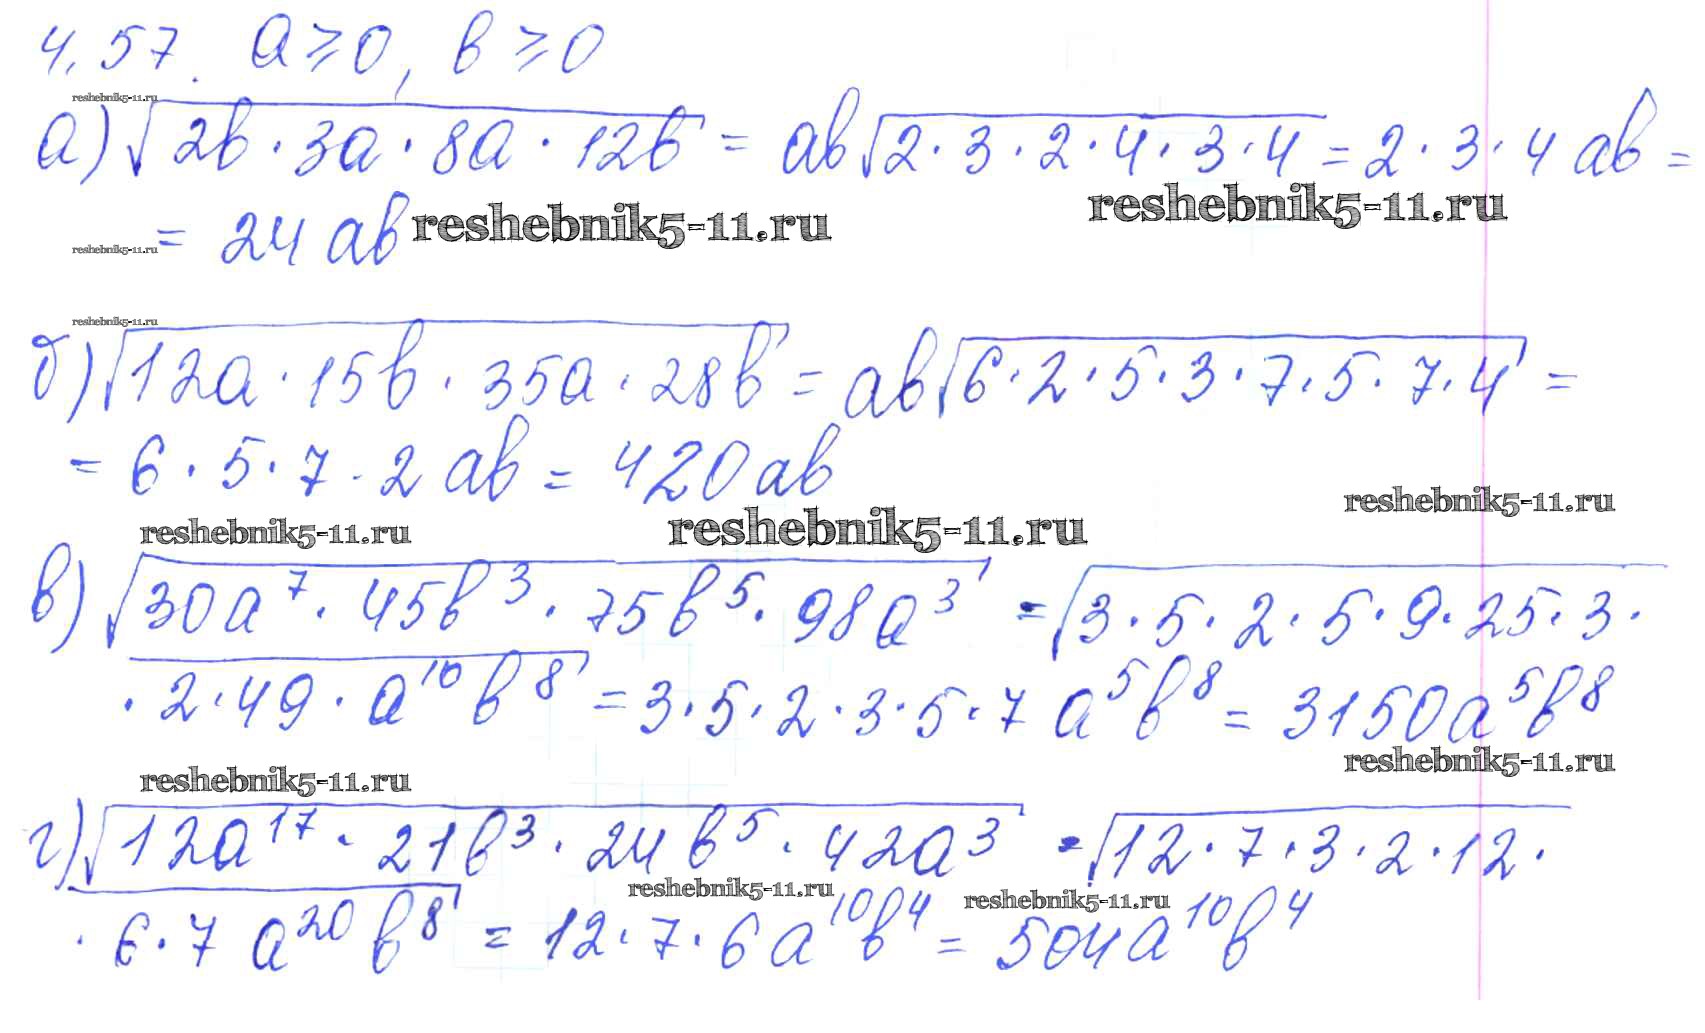 4.57. a ≥ 0, b ≥ 0
reshebnik5-11.ru
а) √(2b · 3a · 8a · 12b) = ab√(2 · 3 · 2 · 4 · 3 · 4) = 2 · 3 · 4 ab =
reshebnik5-11.ru
reshebnik5-11.ru = 24 ab reshebnik5-11.ru
reshebnik5-11.ru
б) √(12a · 15b · 35a · 28b) = ab√(6 · 2 · 5 · 3 · 7 · 5 · 7 · 4) =
= 6 · 5 · 7 · 2 ab = 420 ab
reshebnik5-11.ru
reshebnik5-11.ru reshebnik5-11.ru
в) √(30a⁷ · 45b³ · 75b⁵ · 98a³) = √(3 · 5 · 2 · 5 · 9 · 25 · 3 ·
· 2 · 49 · a¹⁰b⁸) = 3 · 5 · 2 · 3 · 5 · 7 a⁵b⁸ = 3150a⁵b⁸
reshebnik5-11.ru
reshebnik5-11.ru
г) √(12a¹⁷ · 21b³ · 24b⁵ · 42a³) = √(12 · 7 · 3 · 2 · 12 ·
reshebnik5-11.ru reshebnik5-11.ru
· 6 · 7 a²⁰b⁸) = 12 · 7 · 6a¹⁰b⁴ = 504a¹⁰b⁴